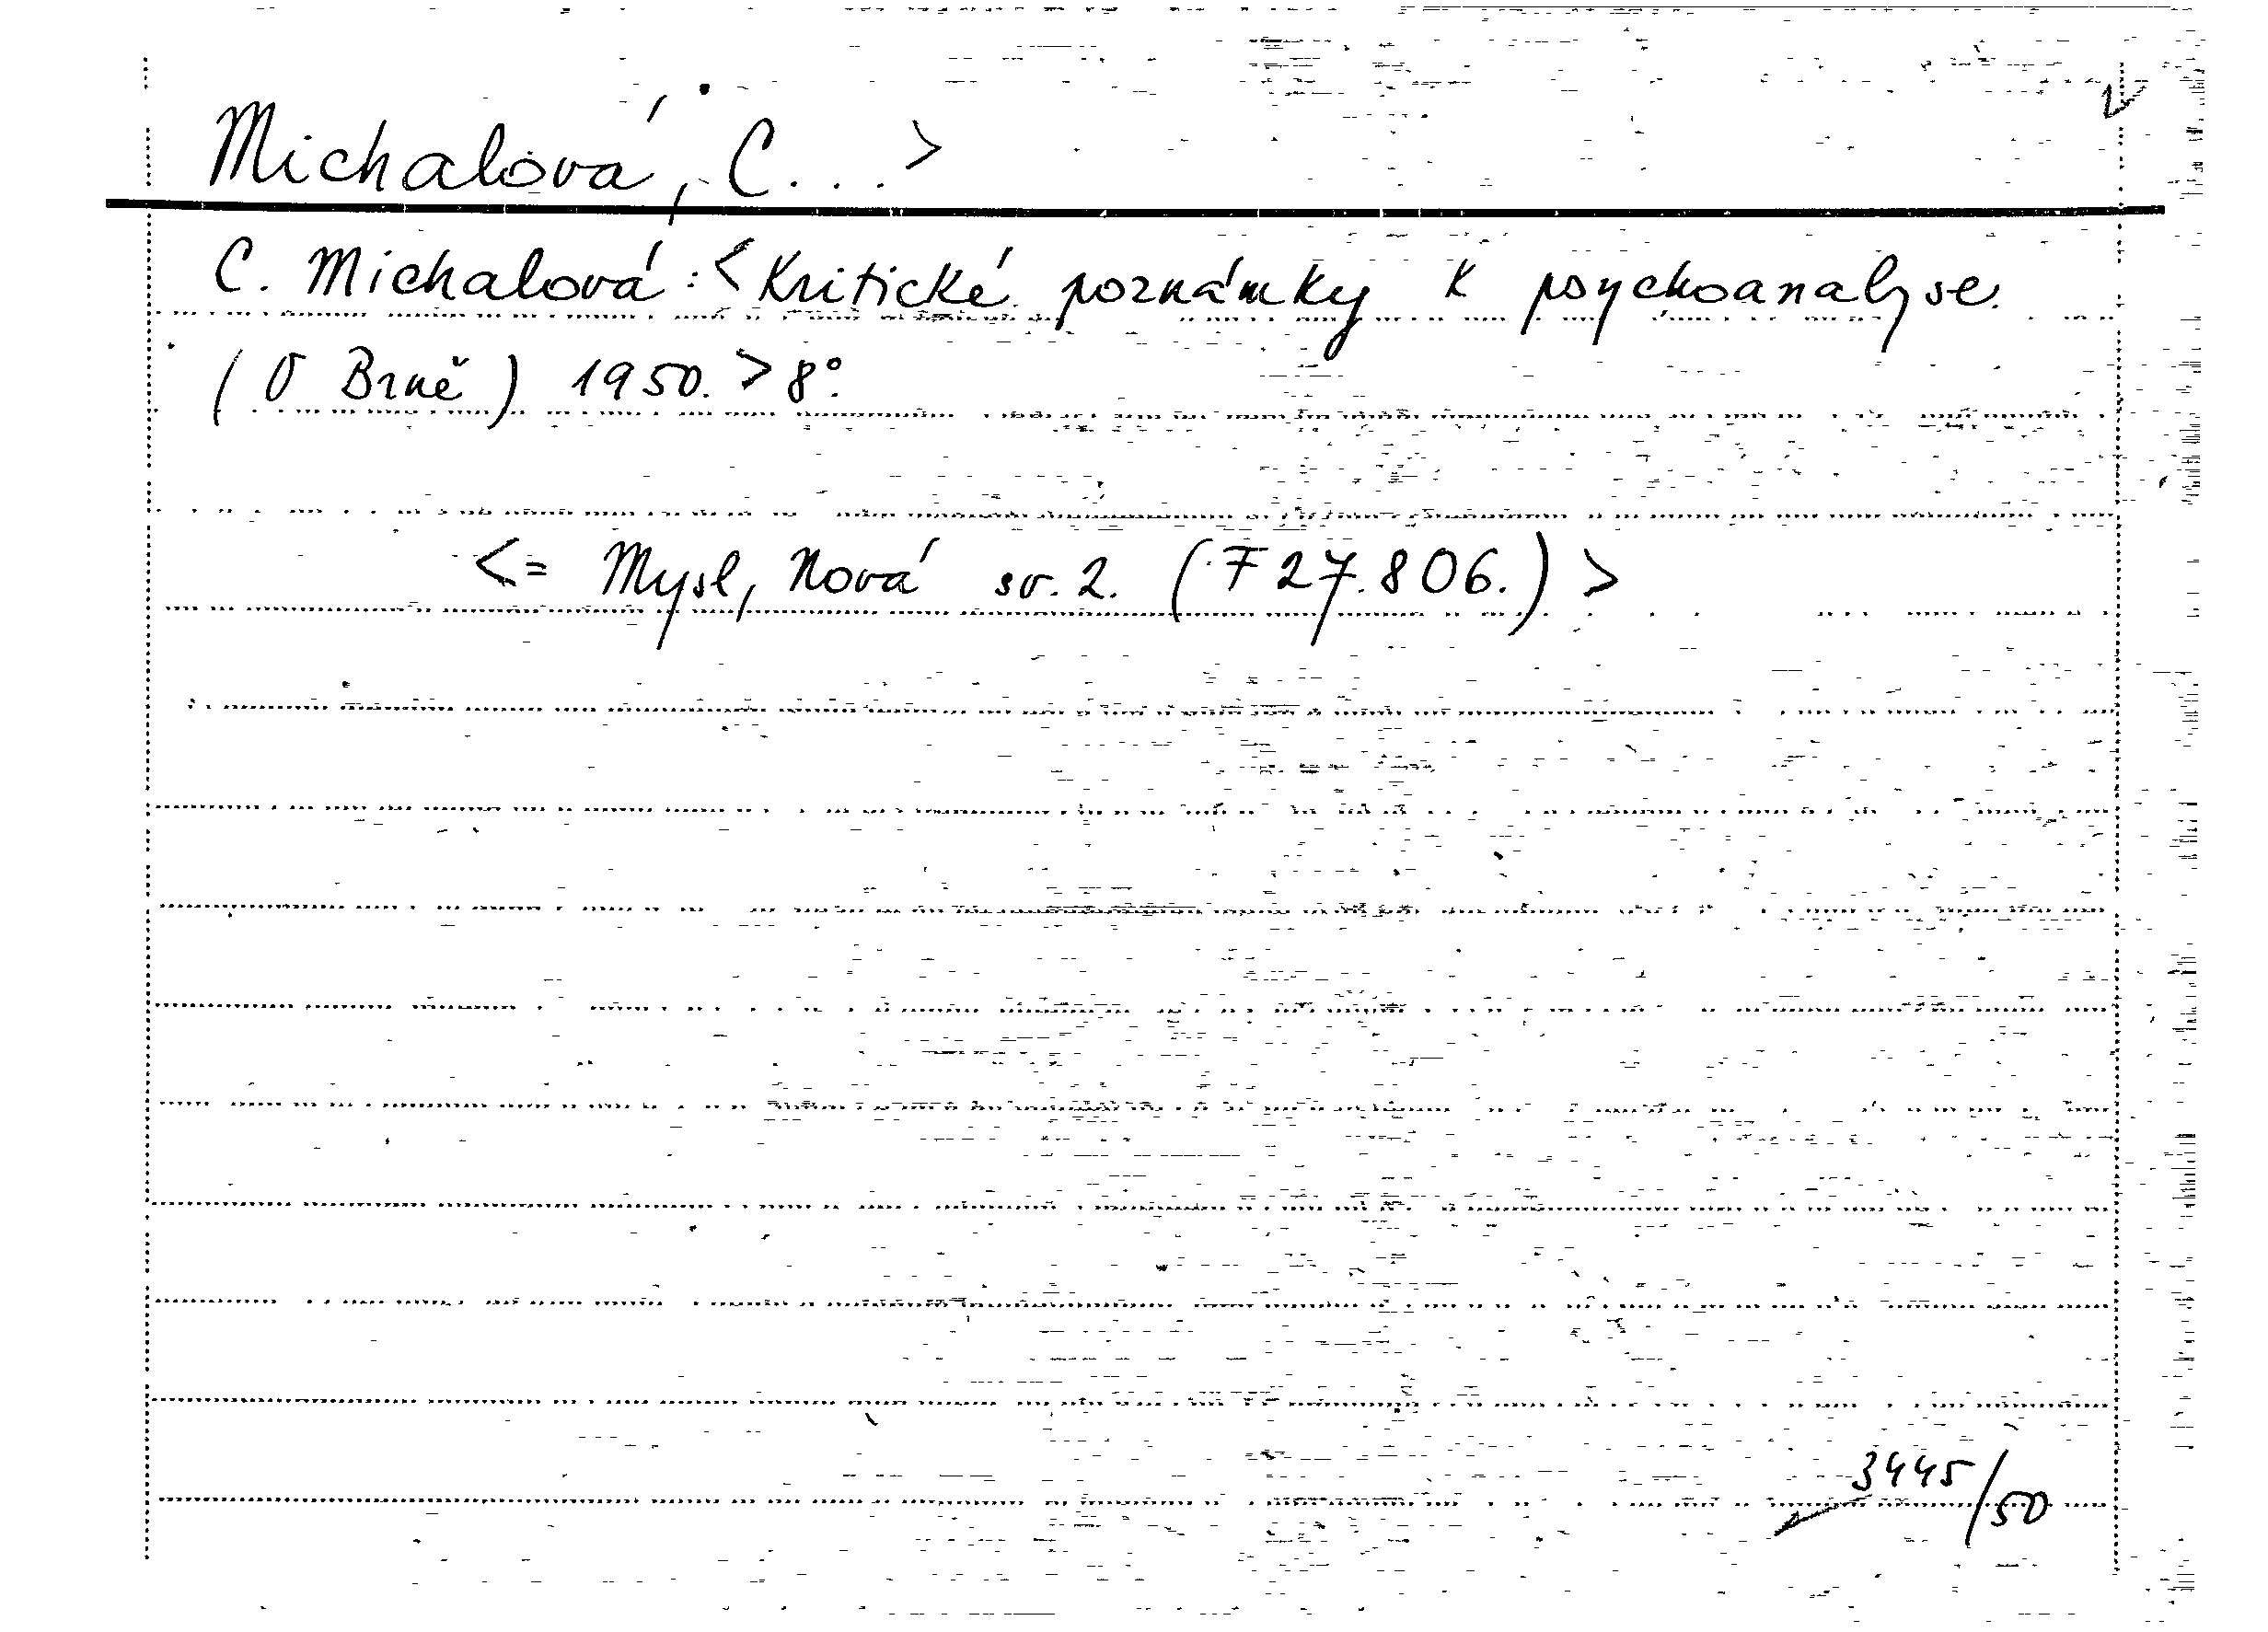 Michalová, C...>
C. Michalová: <Kritické poznámky k psychoanalyse.
(V Brně) 1950.> 8°.
<= Mysl, Nová sv. 2. (F 27.806.)>
3445/50